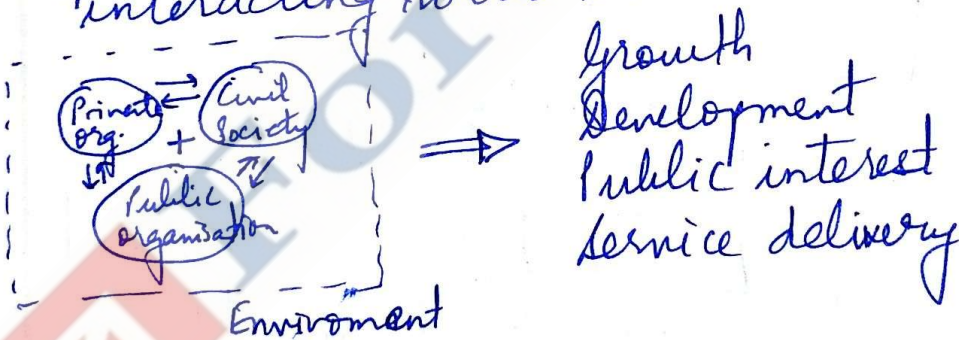 interacting
Private Civil
org. + Society
Public
organisation
Enviroment
Growth
Development
Public interest
Service delivery